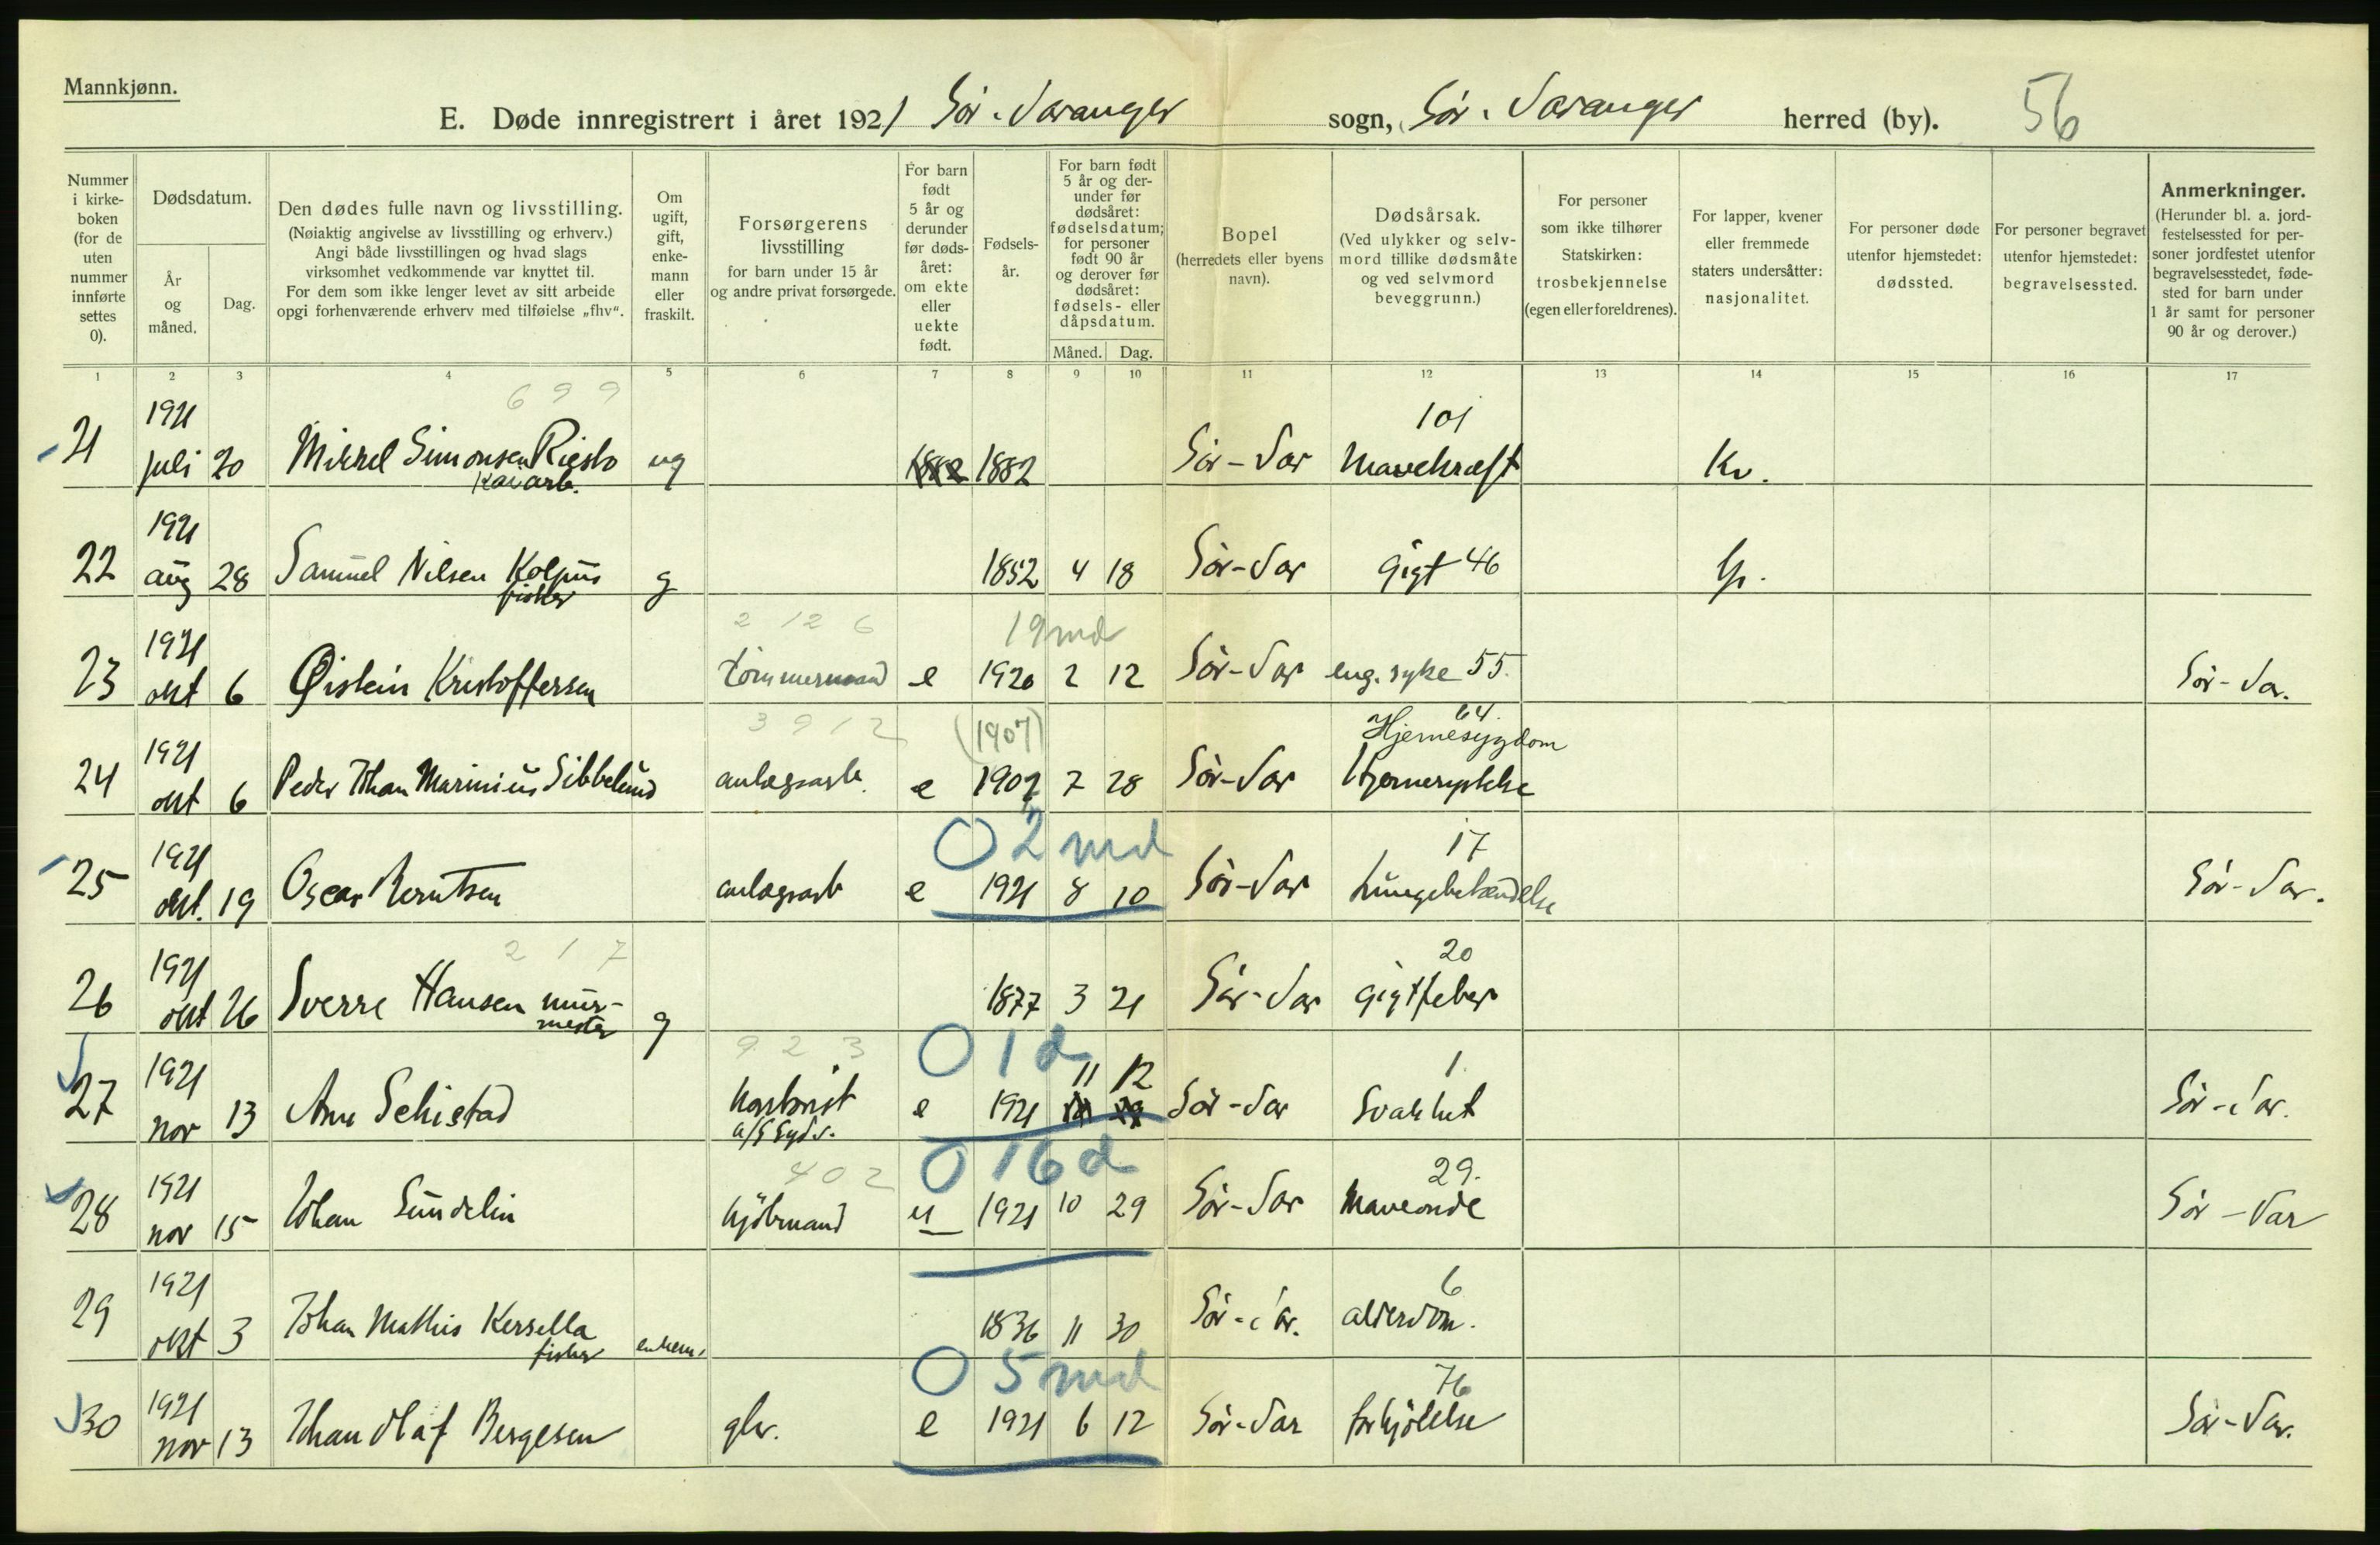 Mannkjønn.
E. Døde innregistrert i året 1921 Sör-Varanger sogn, Sör-Varanger herred (by). 56
Nummer i kirke-boken (for de uten nummer innførte settes 0).
Dødsdatum.
År og måned.
Dag.
Den dødes fulle navn og livsstilling.
(Nøiaktig angivelse av livsstilling og erhverv.)
Angi både livsstillingen og hvad slags
virksomhet vedkommende var knyttet til.
For dem som ikke lenger levet av sitt arbeide
opgi forhenværende erhverv med tilføielse „fhv“.
Om ugift, gift, enke-mann eller fraskilt.
Forsørgerens livsstilling
for barn under 15 år
og andre privat forsørgede.
For barn født 5 år og derunder før døds-året: om ekte eller uekte født.
Fødsels-år.
For barn født 5 år og der-under før dødsåret: fødselsdatum; for personer født 90 år og derover før dødsåret: fødsels- eller dåpsdatum.
Måned. Dag.
Bopel
(herredets eller byens navn).
Dødsårsak.
(Ved ulykker og selv-mord tillike dødsmåte og ved selvmord beveggrunn.)
For personer som ikke tilhører Statskirken: trosbekjennelse (egen eller foreldrenes).
For lapper, kvener eller fremmede staters undersåtter: nasjonalitet.
For personer døde utenfor hjemstedet: dødssted.
For personer begravet utenfor hjemstedet: begravelsessted.
Anmerkninger.
(Herunder bl. a. jord-festelsessted for per-soner jordfestet utenfor begravelsesstedet, føde-sted for barn under 1 år samt for personer 90 år og derover.)
1 2 3 4 5 6 7 8 9 10 11 12 13 14 15 16 17
699 101
21 1921 juli 20 Mikkel Simonsen Riesto ug 1882 1882 Sör-Var Mavekræft Kv.
22 1921 aug 28 Samuel Nilsen Kolpus g 1852 4 18 Sör-Var Gigt 46
fisker
2 12 6 19 md
23 1921 okt 6 Øistein Kristoffersen tömmermand e 1920 2 12 Sör-Var eng. syke 55. Sör-Var.
3912 (1907) 64.
Hjernesygdom
24 1921 okt 6 Peder Johan Marinius Sibbelund anlægsarb. e 1907 7 28 Sör-Var
0 2 md 17
25 1921 okt. 19 Oscar Berntsen anlægsarb e 1921 8 10 Sör-Var Lungebetændelse Sör-Var.
217 20
26 1921 okt 26 Sverre Hansen mur-mester g 1877 3 21 Sör-Var Gigtfeber
923 0 1 d 11 12 1
27 1921 nov 13 Arne Schistad kontorist e 1921 Sör-Var Svakhet Sör-Var.
A/S Sydv.
402 0 16 d 29.
28 1921 nov 15 Johan Sundelin kjöbmand u 1921 10 29 Sör-Var Maveonde Sör-Var
6
29 1921 okt 3 Johan Mathis Kersella enkem. 1836 11 30 Sör-Var. alderdom.
fisker
0 5 md 76
30 1921 nov 13 Johan Olaf Bergesen gbr. e 1921 6 12 Sör-Var forkjölelse Sör-Var.